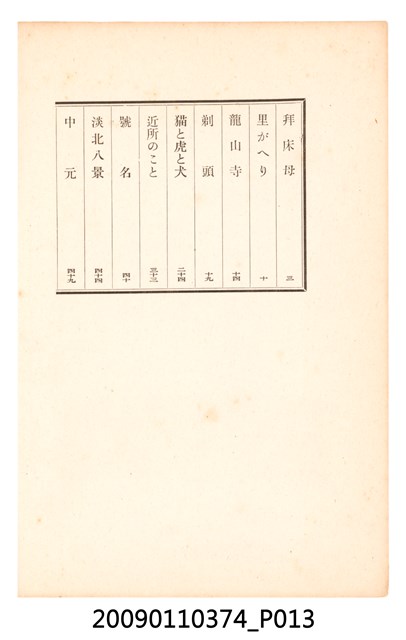 拜床母 三
里がへり 十
龍山寺 十四
剃頭 十九
猫と虎と犬 二十四
近所のこと 三十三
號名 四十
淡北八景 四十四
中元 四十九
20090110374_P013